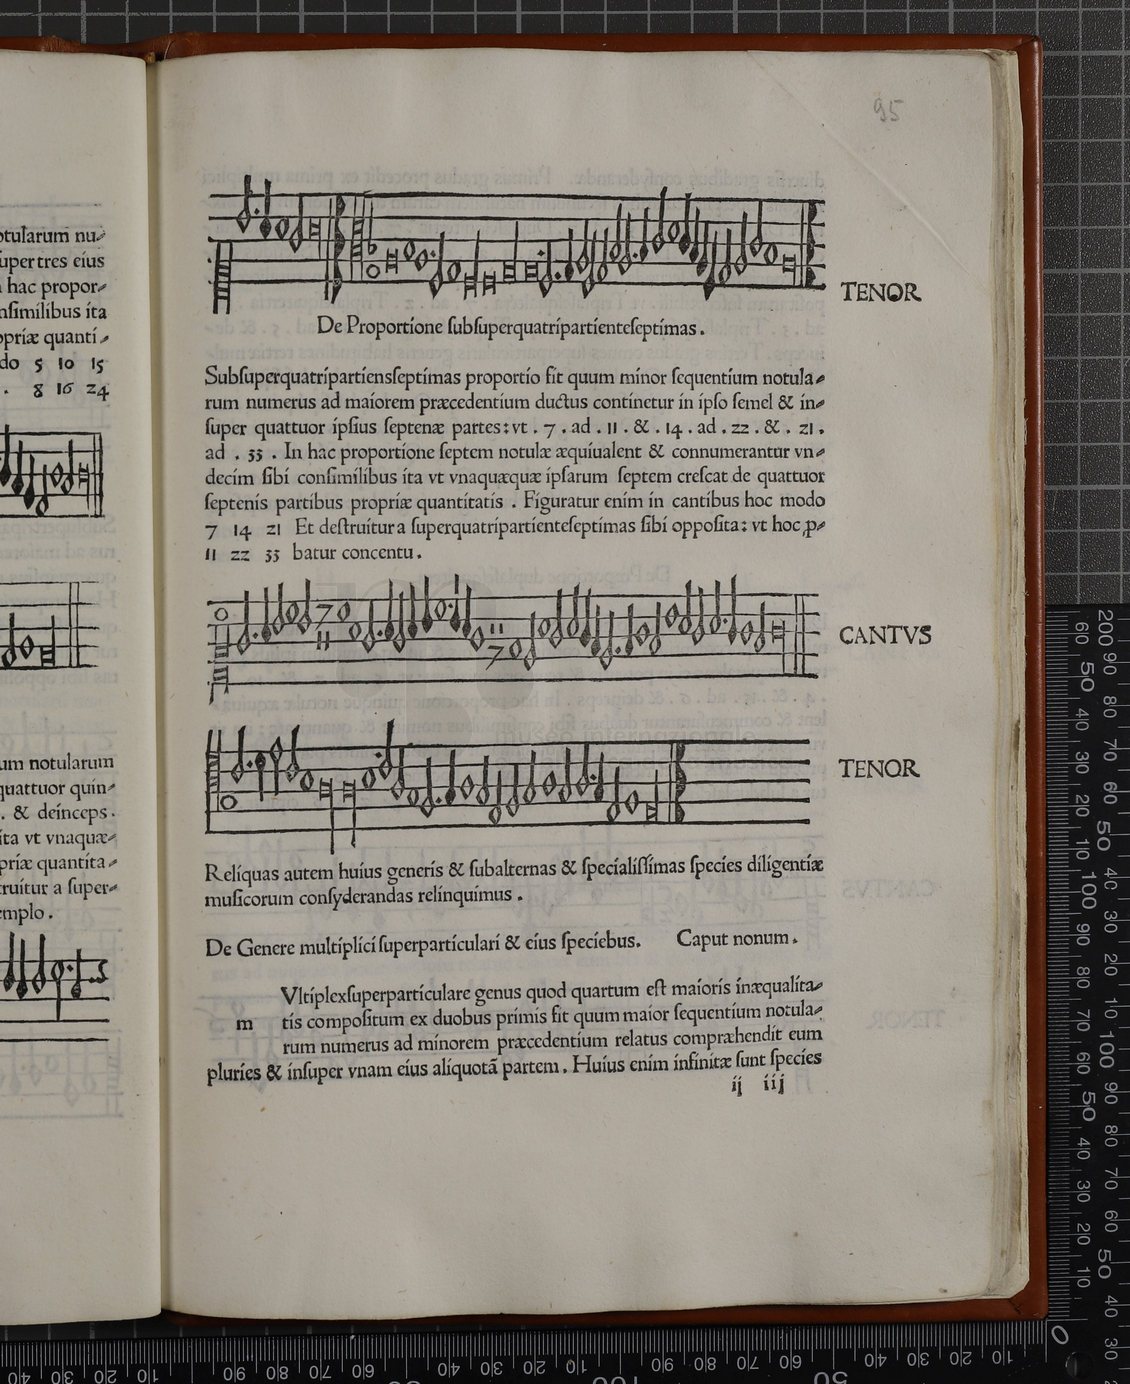 95
TENOR
De Proportione ſubſuperquatripartienteſeptimas.
Subſuperquatripartiensſeptimas proportio fit quum minor ſequentium notula⸗
rum numerus ad maiorem præcedentium ductus continetur in ipſo ſemel & in⸗
ſuper quattuor ipſius ſeptenæ partes: vt . 7 . ad . 11 . & . 14 . ad . 22 . & . 21 .
ad . 33 . In hac proportione ſeptem notulæ æquiualent & connumerantur vn⸗
decim ſibi conſimilibus ita vt vnaquæquæ ipſarum ſeptem creſcat de quattuor
ſeptenis partibus propriæ quantitatis . Figuratur enim in cantibus hoc modo
7 14 21 Et deſtruitur a ſuperquatripartienteſeptimas ſibi oppoſita: vt hoc ꝓ⸗
11 22 33 batur concentu .
7
11
11
7
CANTVS
TENOR
Reliquas autem huius generis & ſubalternas & ſpecialiſſimas ſpecies diligentiæ
muſicorum conſyderandas relinquimus .
De Genere multiplici ſuperparticulari & eius ſpeciebus. Caput nonum .
Vltiplexſuperparticulare genus quod quartum eſt maioris inæqualita⸗
m tis compoſitum ex duobus primis fit quum maior ſequentium notula⸗
rum numerus ad minorem præcedentium relatus compræhendit eum
pluries & inſuper vnam eius aliquotã partem . Huius enim infinitæ ſunt ſpecies
ij iij
otularum nu⸗
uper tres eius
hac propor⸗
nſimilibus ita
opriæ quanti⸗
do 5 10 15
. 8 16 24
um notularum
quattuor quin⸗
. & deinceps.
ita vt vnaquæ⸗
priæ quantita⸗
truitur a ſuper⸗
emplo .